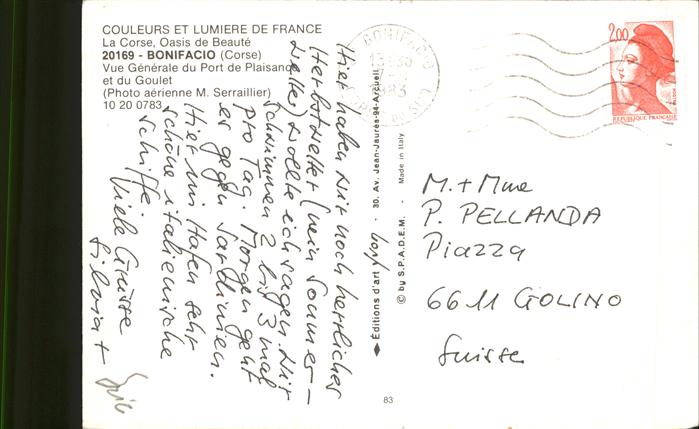 COULEURS ET LUMIERE DE FRANCE
La Corse, Oasis de Beauté
20169 - BONIFACIO (Corse)
Vue Générale du Port de Plaisance
et du Goulet
(Photo aérienne M. Serraillier)
10 20 0783
Hier haben wir noch herrliches
Herbstwetter (nein Sommer-
wetter) wollte ich sagen. Wir
schwimmen 2 bis 3 mal
pro Tag. Morgen geht
es gegen Sardinien.
Hier im Hafen sehr
schöne italienische
Schiffe.
Viele Grüsse
Silvia +
Éditions d'art yvon - 30, Av. Jean-Jaurès-94-Arcueil
© by S.P.A.D.E.M. - Made in Italy
BONIFACIO
1983
2,00
REPUBLIQUE FRANÇAISE
M. + Mme
P. PELLANDA
Piazza
6611 GOLINO
Suisse
83